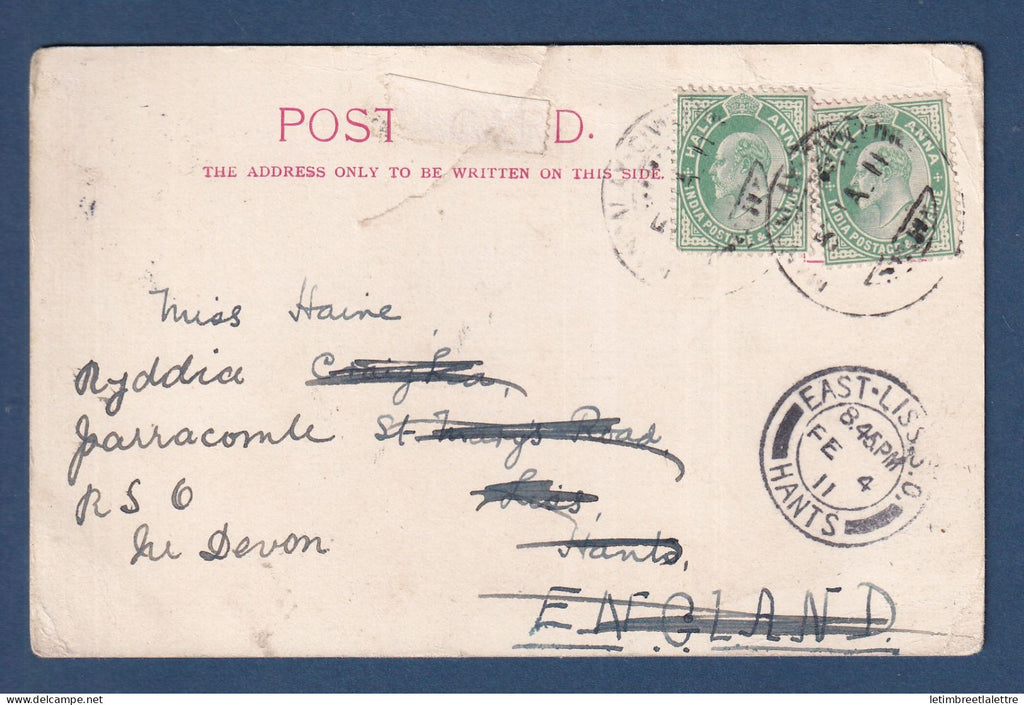 POST C D.
THE ADDRESS ONLY TO BE WRITTEN ON THIS SIDE.
HALF ANNA
INDIA POSTAGE & REVENUE
ANNA
INDIA POSTAGE &
Miss Haine
Ryddia
Parracombe St Mary's Road,
R S O Liss,
N Devon Hants,
ENGLAND.
EAST-LISS S.O.
8.45PM
FE 4
11
HANTS
letimbreetlalettre